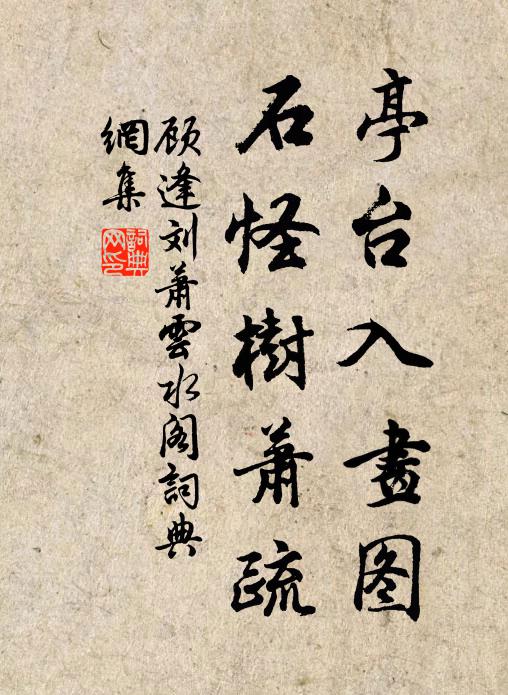 亭台入畫图
石怪樹萧疏
顾逢刘萧雲水阁詞典
網集
詞典
网印